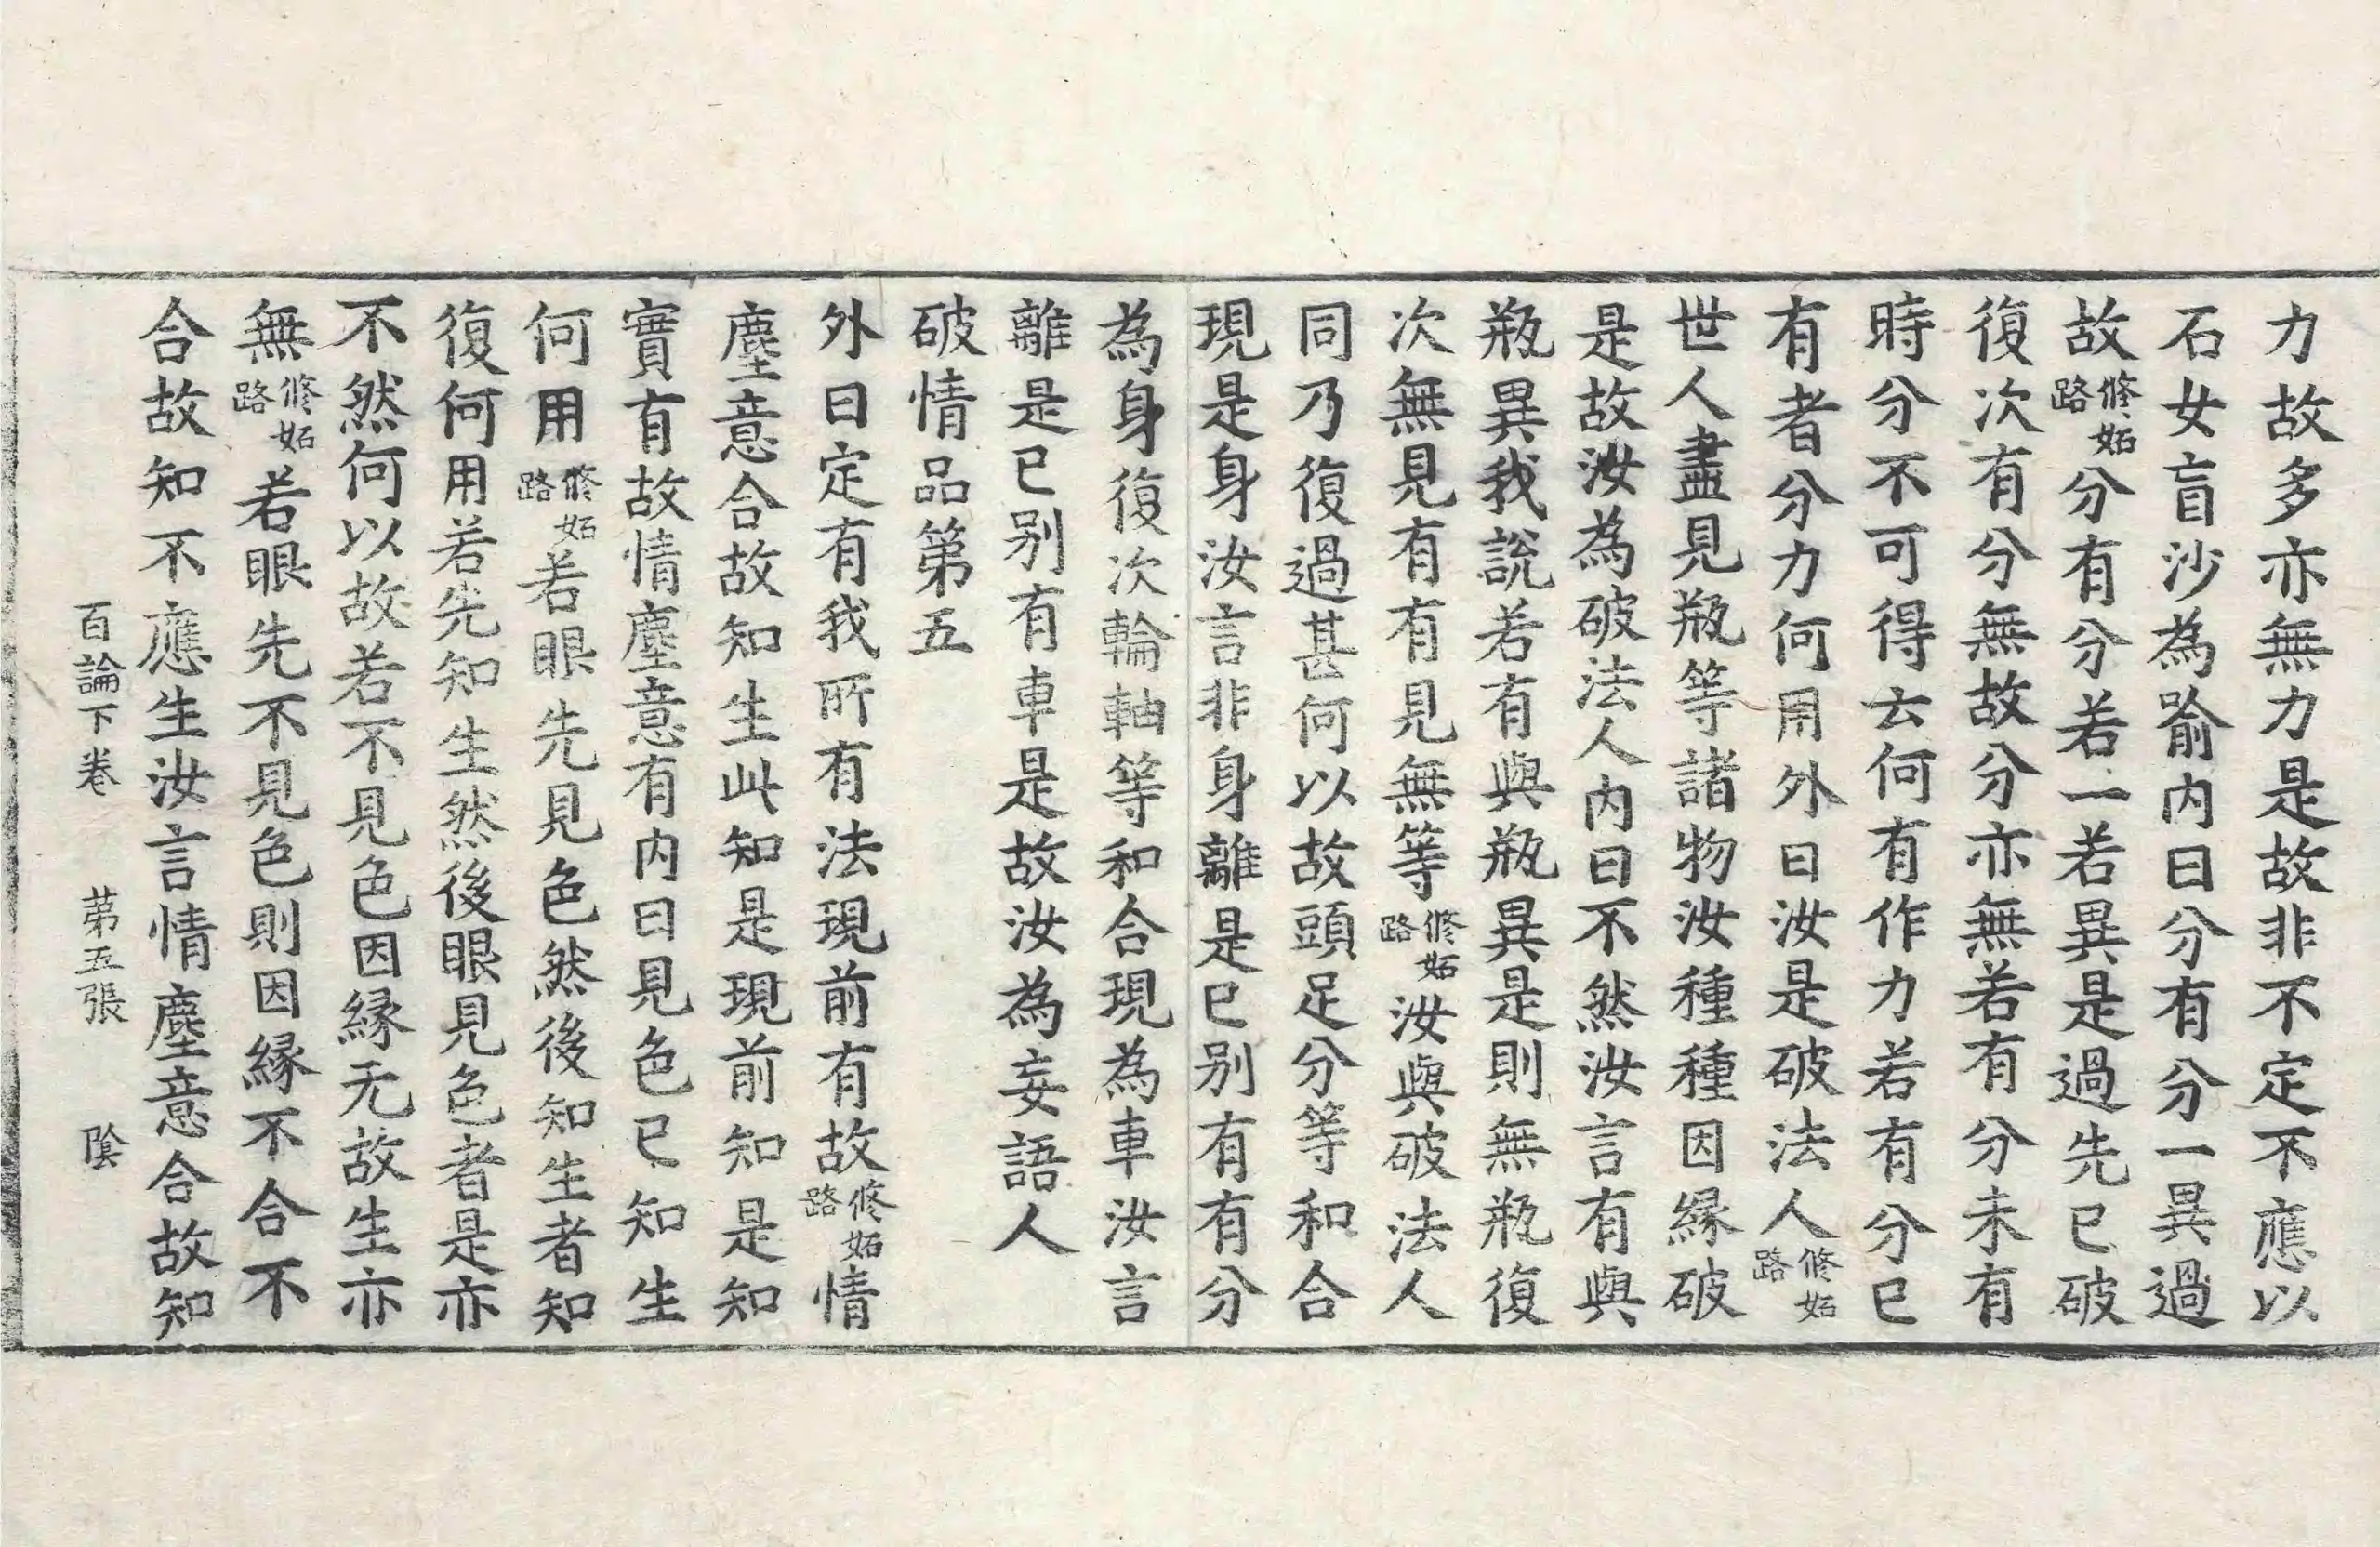 力故多亦無力是故非不定不應以
石女盲沙為喻内曰分有分一異過
故修妬路分有分若一若異是過先已破
復次有分無故分亦無若有分未有
時分不可得云何有作力若有分已
有者分力何用外曰汝是破法人修妬路
世人盡見瓶等諸物汝種種因縁破
是故汝為破法人内曰不然汝言有與
瓶異我說若有與瓶異是則無瓶復
次無見有有見無等修妬路汝與破法人
同乃復過甚何以故頭足分等和合
現是身汝言非身離是已别有有分
為身復次輪軸等和合現為車汝言
離是已别有車是故汝為妄語人
破情品第五
外曰定有我所有法現前有故修妬路情
塵意合故知生此知是現前知是知
實有故情塵意有内曰見色已知生
何用修妬路若眼先見色然後知生者知
復何用若先知生然後眼見色者是亦
不然何以故若不見色因縁无故生亦
無修妬路若眼先不見色則因縁不合不
合故知不應生汝言情塵意合故知
百論下卷 苐五張 隂